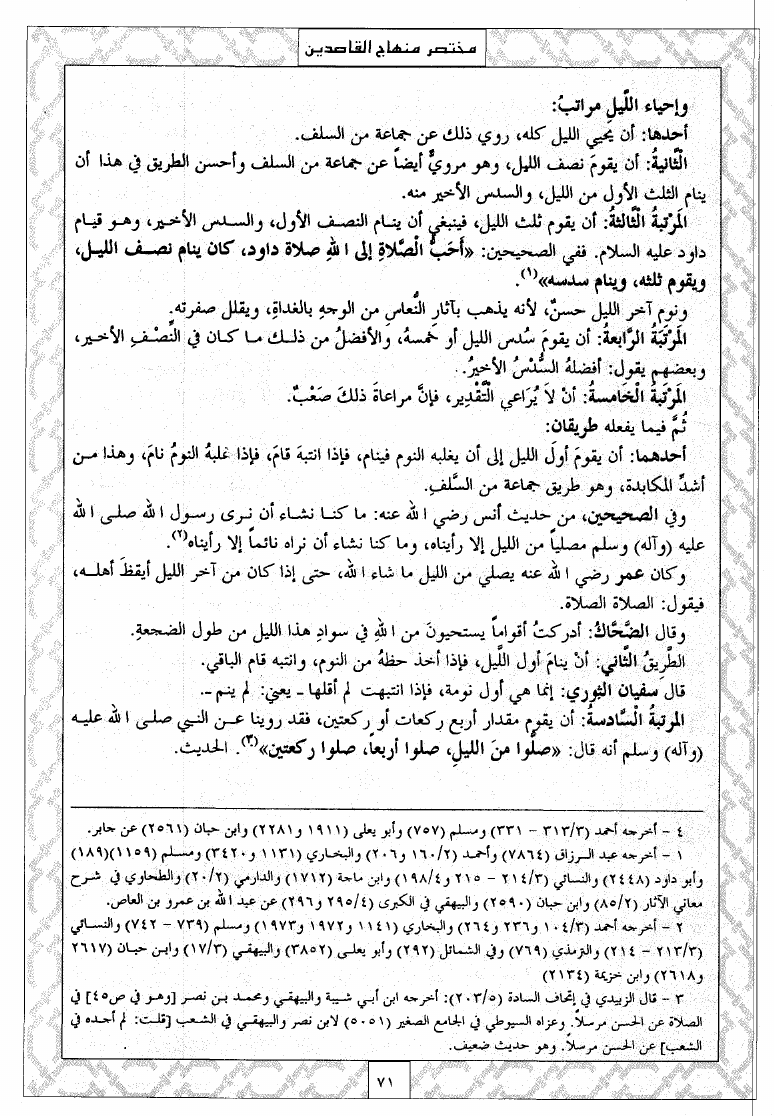 مختصر منهاج القاصدين
وإحياء اللّيلِ مراتبُ:
أحدها: أن يحيي الليل كله، روي ذلك عن جماعة من السلف.
الثّانيةُ: أن يقومَ نصف الليل، وهو مرويٌّ أيضاً عن جماعة من السلف وأحسن الطريق في هذا أن
ينام الثلث الأول من الليل، والسدس الأخير منه.
المَرْتبةُ الثّالثةُ: أن يقوم ثلث الليل، فينبغي أن ينام النصف الأول، والسدس الأخير، وهو قيام
داود عليه السلام. ففي الصحيحين: «أَحَبُّ الصَّلاةِ إلى اللهِ صلاة داود، كان ينام نصف الليل،
ويقوم ثلثه، وينام سدسه»(١).
ونوم آخر الليل حسنٌ، لأنه يذهب بآثارِ النُّعاسِ من الوجهِ بالغداةِ، ويقلل صفرته.
المَرْتبَةُ الرَّابعةُ: أن يقومَ سُدس الليل أو خمسهُ، والأفضلُ من ذلك ما كان في النِّصْفِ الأخير،
وبعضهم يقول: أفضلهُ السُّدْسُ الأخيرُ.
المَرْتبةُ الْخامسةُ: أنْ لاَ يُرَاعي التَّقْدِير، فإنَّ مراعاةَ ذلكَ صَعْبٌ.
ثُمَّ فيما يفعله طريقان:
أحدهما: أن يقومَ أولَ الليل إلى أن يغلبه النوم فينام، فإذا انتبهَ قامَ، فإذا غلبهُ النومُ نامَ، وهذا من
أشدِّ المكابدة، وهو طريق جماعة من السَّلفِ.
وفي الصحيحين، من حديث أنس رضي الله عنه: ما كنا نشاء أن نرى رسول الله صلى الله
عليه (وآله) وسلم مصلياً من الليل إلا رأيناه، وما كنا نشاء أن نراه نائماً إلا رأيناه(٢).
وكان عمر رضي الله عنه يصلي من الليل ما شاء الله، حتى إذا كان من آخر الليل أيقظَ أهله،
فيقول: الصلاة الصلاة.
وقال الضَّحّاكُ: أدركتُ أقواماً يستحيونَ من اللهِ في سوادِ هذا الليل من طول الضجعةِ.
الطَّريقُ الثّاني: أنْ ينامَ أول اللّيل، فإذا أخذ حظهُ من النوم، وانتبه قام الباقي.
قال سفيان الثوري: إنما هي أول نومة، فإذا انتبهت لم أقلها ـ يعني: لم ينم ـ.
المرتبةُ السَّادسةُ: أن يقوم مقدار أربع ركعات أو ركعتين، فقد روينا عن النبي صلى الله عليه
(وآله) وسلم أنه قال: «صلُّوا منَ الليلِ، صلوا أربعاً، صلوا ركعتين»(٣). الحديث.
٤ - أخرجه أحمد (٣١٣/٣ - ٣٣١) ومسلم (٧٥٧) وأبو يعلى (١٩١١ و٢٢٨١) وابن حبان (٢٥٦١) عن جابر.
١ - أخرجه عبد الرزاق (٧٨٦٤) وأحمد (١٦٠/٢ و٢٠٦) والبخاري (١١٣١ و٣٤٢٠) ومسلم (١١٥٩)(١٨٩)
وأبو داود (٢٤٤٨) والنسائي (٢١٤/٣ - ٢١٥ و١٩٨/٤) وابن ماجة (١٧١٢) والدارمي (٢٠/٢) والطحاوي في شرح
معاني الآثار (٨٥/٢) وابن حبان (٢٥٩٠) والبيهقي في الكبرى (٢٩٥/٤ و٢٩٦) عن عبد الله بن عمرو بن العاص.
٢ - أخرجه أحمد (١٠٤/٣ و٢٣٦ و٢٦٤) والبخاري (١١٤١ و١٩٧٢ و١٩٧٣) ومسلم (٧٣٩ - ٧٤٢) والنسائي
(٢١٣/٣ - ٢١٤) والترمذي (٧٦٩) وفي الشمائل (٢٩٢) وأبو يعلى (٣٨٥٢) والبيهقي (١٧/٣) وابن حبان (٢٦١٧
و٢٦١٨) وابن خزيمة (٢١٣٤)
٣ - قال الزبيدي في إتحاف السادة (٢٠٣/٥): أخرجه ابن أبي شيبة والبيهقي ومحمد بن نصر [وهو في ص٤٥] في
الصلاة عن الحسن مرسلاً. وعزاه السيوطي في الجامع الصغير (٥٠٥١) لابن نصر والبيهقي في الشعب [قلت: لم أجده في
الشعب] عن الحسن مرسلاً. وهو حديث ضعيف.
٧١